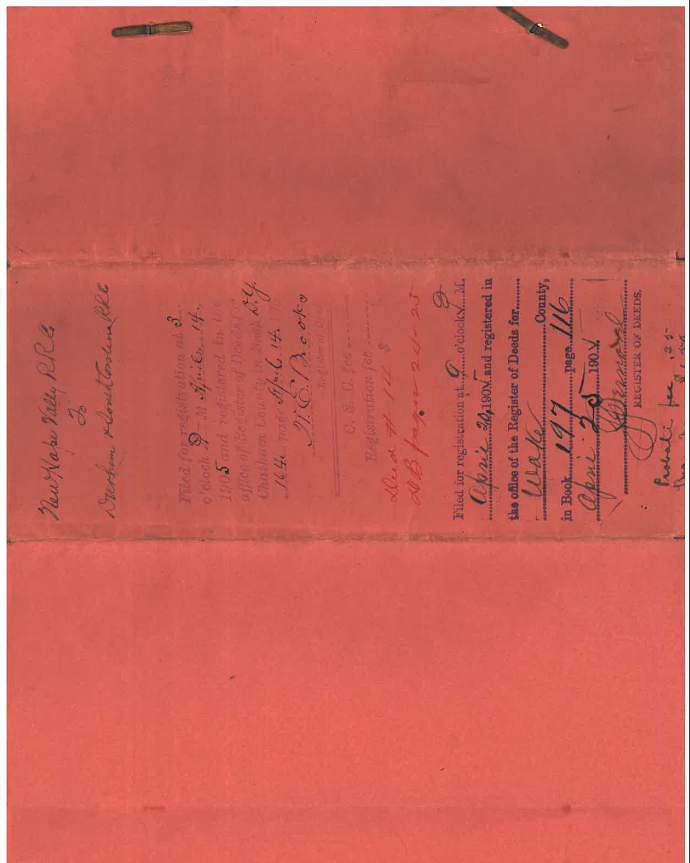 New Hope Valley R.R.Co
To
Durham & South Carolina R.R.Co
Filed for registration at 3
o'clock P M April 14.
1905 and registered in the
office Register of Deeds for
Chatham County in Book D.Y.
page April 14.
C. S. C. fee
Registration fee
Deed # 14
D B pages 24-25
Filed for registration at 9 o'clock M.
April 20, 190 and registered in
the office of the Register of Deeds for
Wake County,
in Book 197 page 116
April 25 190
REGISTER OF DEEDS.
Probate fee .25